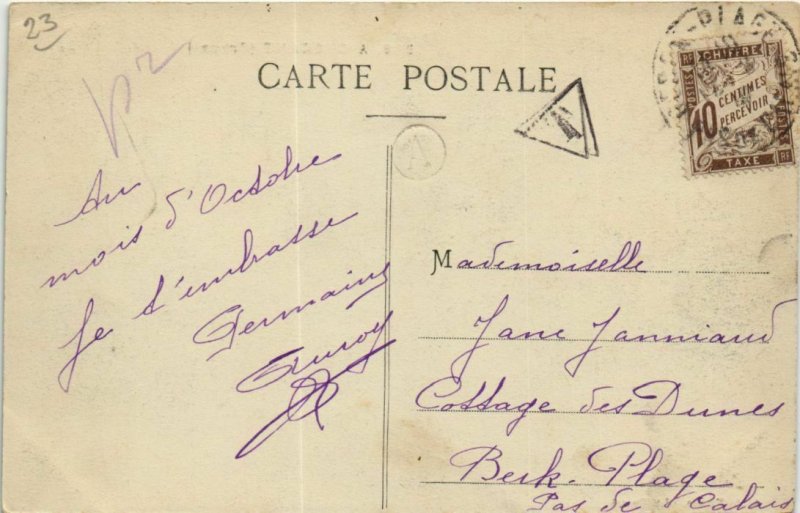 23
CARTE POSTALE
T
A
POSTES
CHIFFRE
10
CENTIMES
A
PERCEVOIR
TAXE
RF
Au
mois d'Octobre
Je t'embrasse
Germaine
Mademoiselle
Jane Janniaud
Cottage des Dunes
Berk. Plage
Pas de Calais